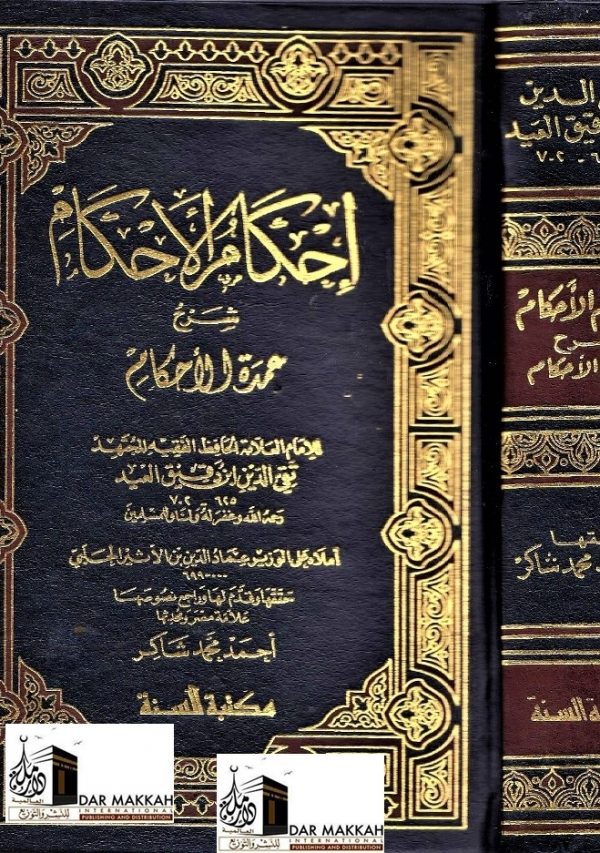 إحكام الأحكام
شرح
عمدة الأحكام
للإمام العلامة الحافظ الفقيه المجتهد
تقي الدين ابن دقيق العيد
٦٢٥ - ٧٠٢
رحمه الله وغفر له ولنا وللمسلمين
أملاه على الوزير عماد الدين بن الأثير الحلبي
٠٠٠ - ٦٩٩
حققها وقدم لها وراجع نصوصها
علامة مصر ومحدثها
أحمد محمد شاكر
مكتبة السنة
الدين
دقيق العيد
٧٠٢
م الأحكام
شرح
الأحكام
محمد شاكر
ة السنة
دار مكة
العالمية
للنشر والتوزيع
DAR MAKKAH
INTERNATIONAL
PUBLISHING AND DISTRIBUTION
دار مكة
العالمية
للنشر والتوزيع
DAR MAKKAH
INTERNATIONAL
PUBLISHING AND DISTRIBUTION